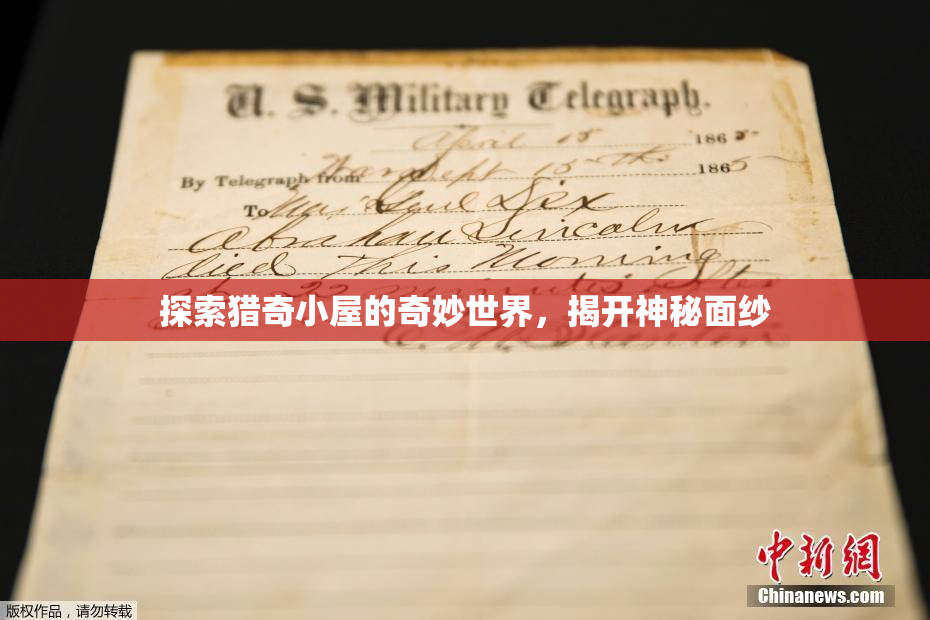 U. S. Military Telegraph.
April 15 1865
By Telegraph from War Dept 15th 1865
To Maj Genl Dix
Abraham Lincoln
died This Morning
at 22 minutes after
探索猎奇小屋的奇妙世界，揭开神秘面纱
E. M. Stanton
中新网
Chinanews.com
版权作品，请勿转载